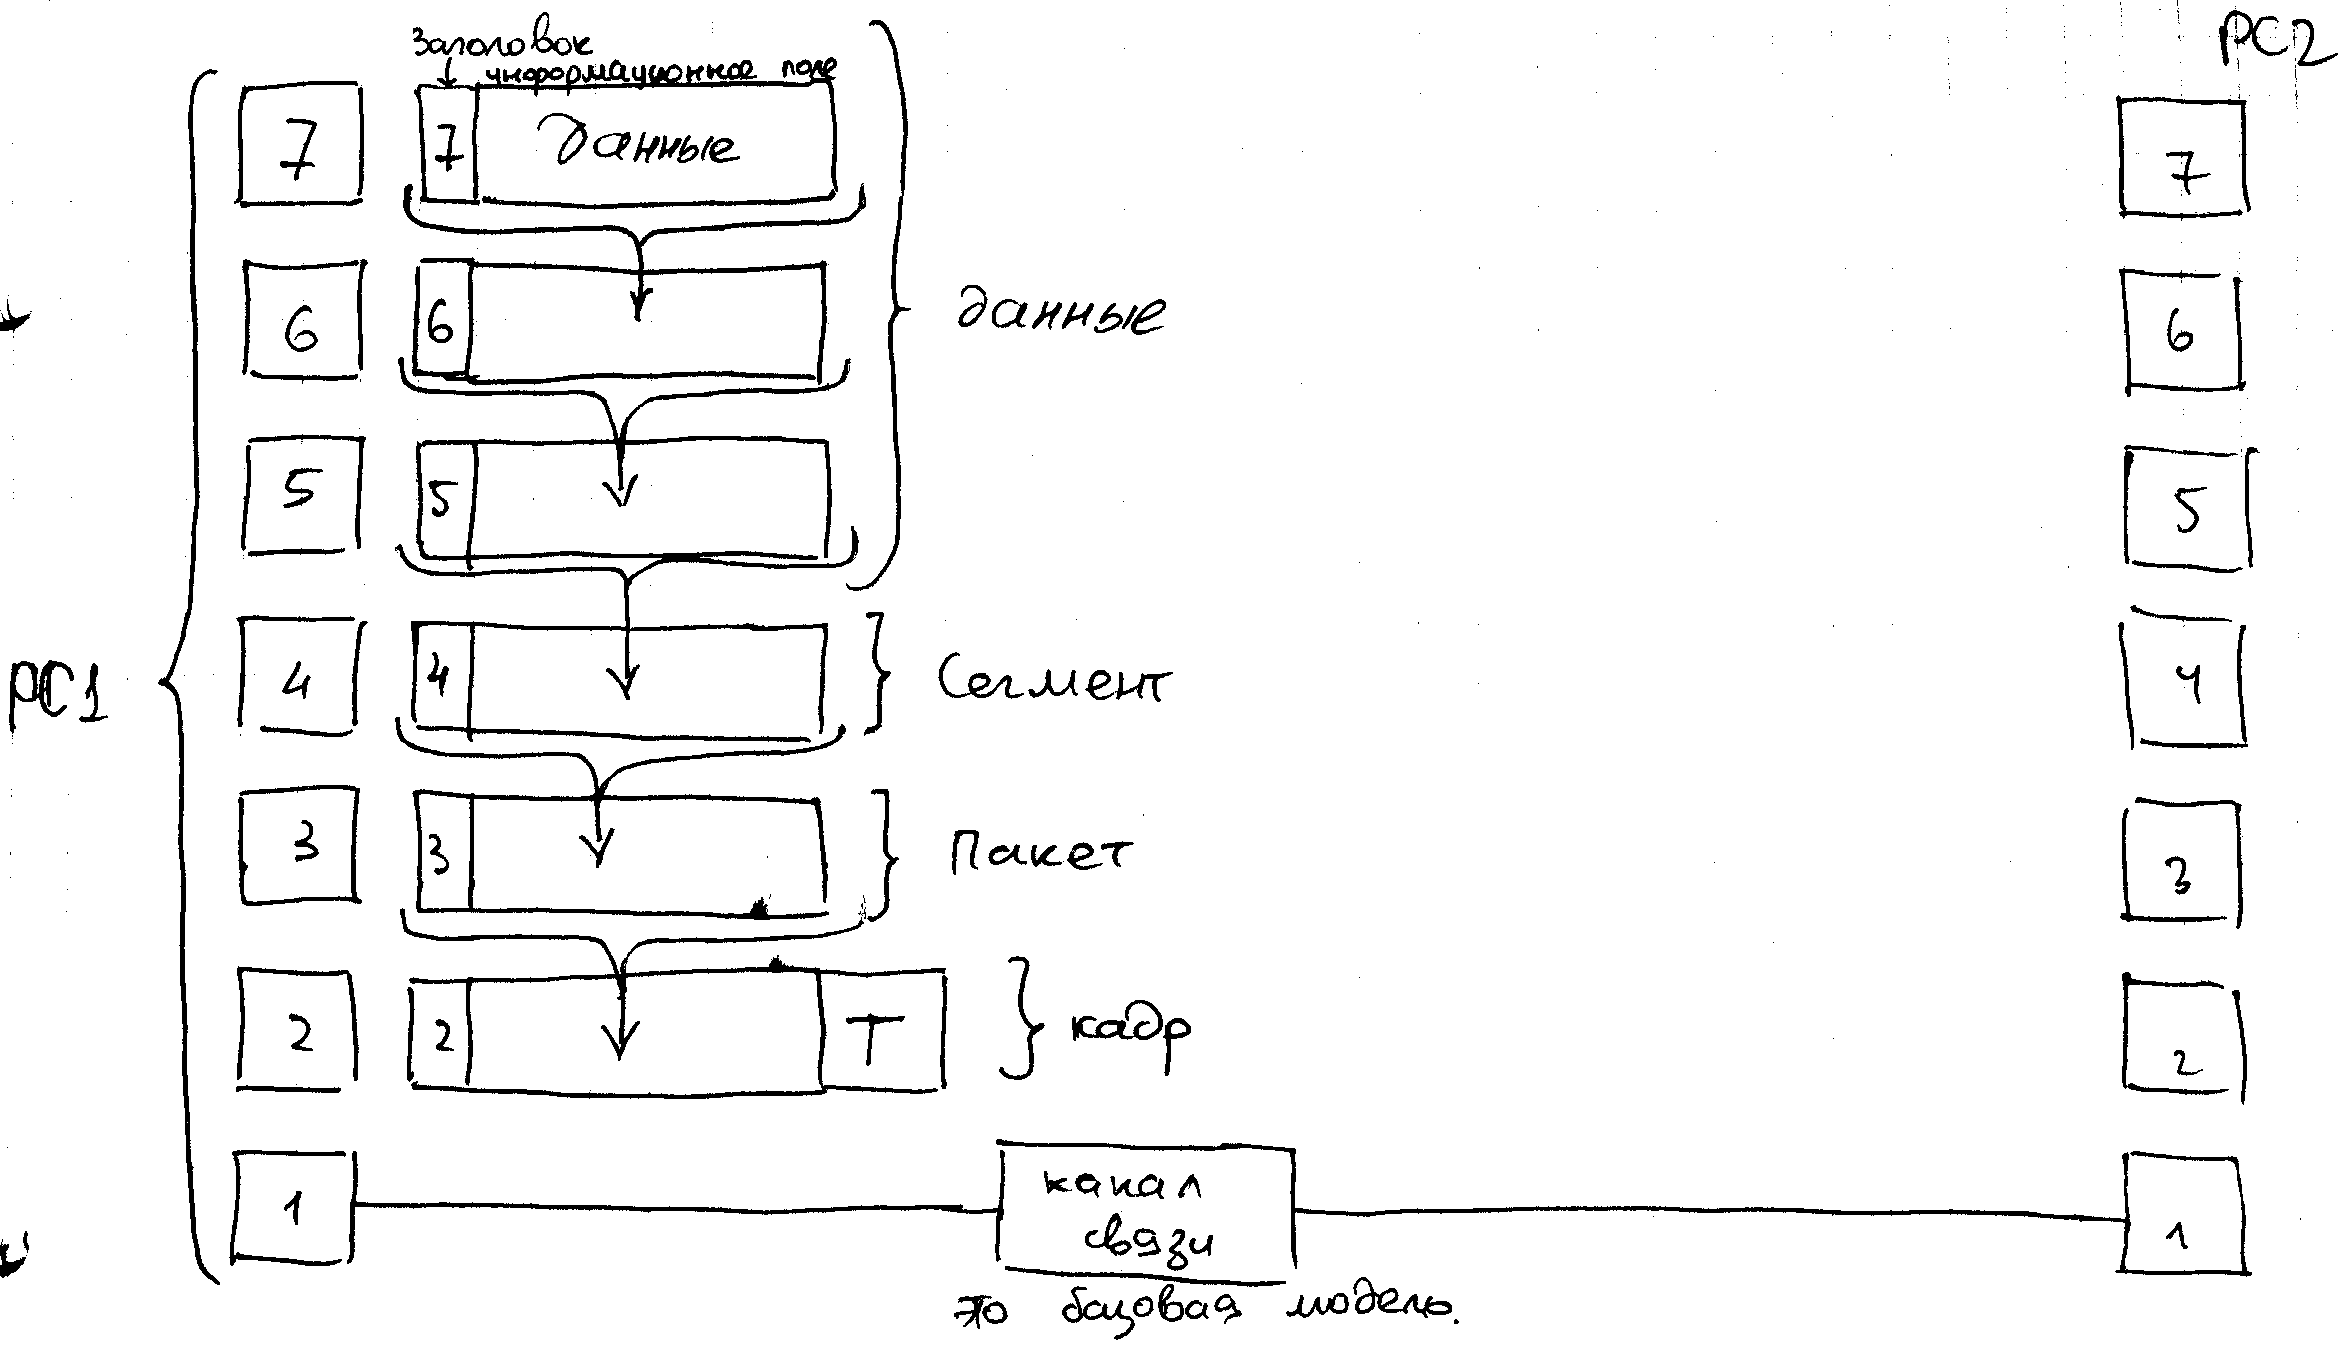 Заголовок
информационное поле
PC2
7 7 Данные 7
6 6 данные 6
5 5 5
PC1
4 4 Сегмент 4
3 3 Пакет 3
2 2 T кадр 2
1 канал 1
связи
это базовая модель.